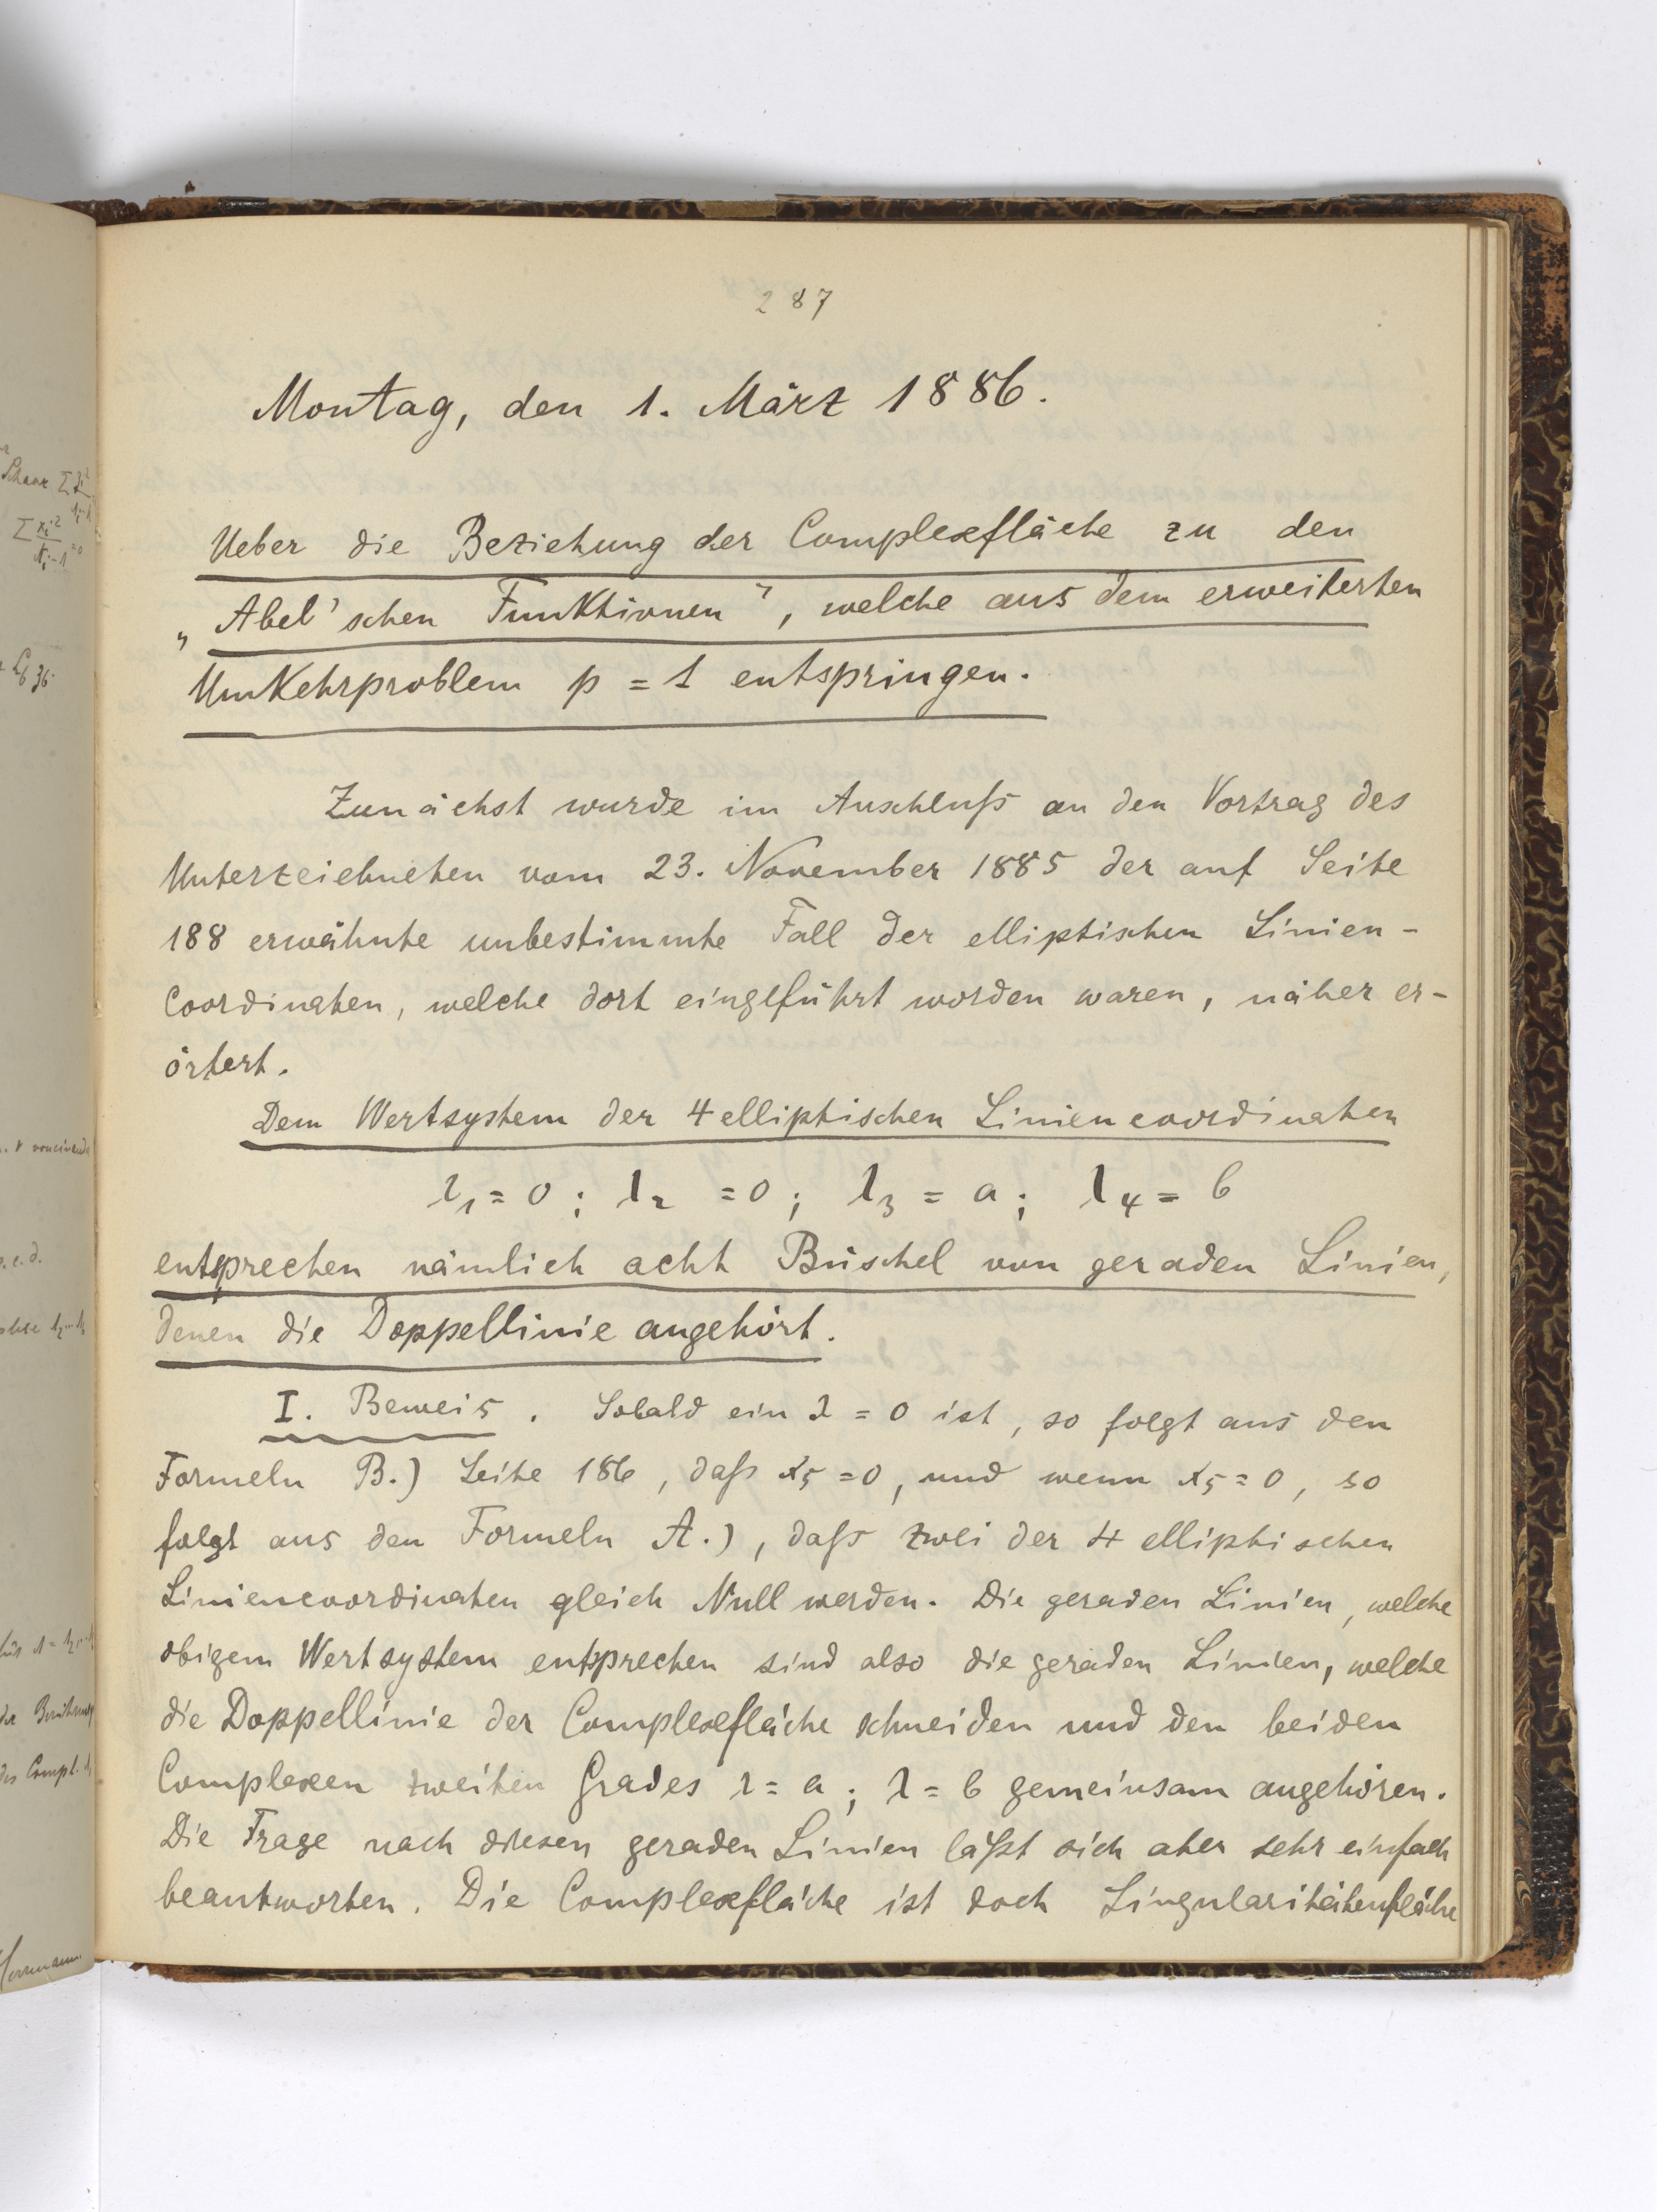 287
Montag, den 1. März 1886.
Ueber die Beziehung der Complexfläche zu den
„Abel'schen Funktionen", welche aus dem erweiterten
Umkehrproblem p = 1 entspringen.
Zunächst wurde im Anschluſs an den Vortrag des
Unterzeichneten vom 23. November 1885 der auf Seite
188 erwähnte unbestimmte Fall der elliptischen Linien-
Coordinaten, welche dort eingeführt worden waren, näher er-
örtert.
Dem Wertsystem der 4 elliptischen Liniencoordinaten
λ₁ = 0 ; λ₂ = 0 ; λ₃ = a ; λ₄ = b
entsprechen nämlich acht Büschel von geraden Linien,
denen die Doppellinie angehört.
I. Beweis. Sobald ein λ = 0 ist, so folgt aus den
Formeln B.) Seite 186, daſs x₅ = 0, und wenn x₅ = 0, so
folgt aus den Formeln A.), daſs zwei der 4 elliptischen
Liniencoordinaten gleich Null werden. Die geraden Linien, welche
obigem Wertsystem entsprechen sind also die geraden Linien, welche
die Doppellinie der Complexfläche schneiden und den beiden
Complexen zweiten Grades λ = a ; λ = b gemeinsam angehören.
Die Frage nach diesen geraden Linien läſst sich aber sehr einfach
beantworten. Die Complexfläche ist doch Singularitätenfläche